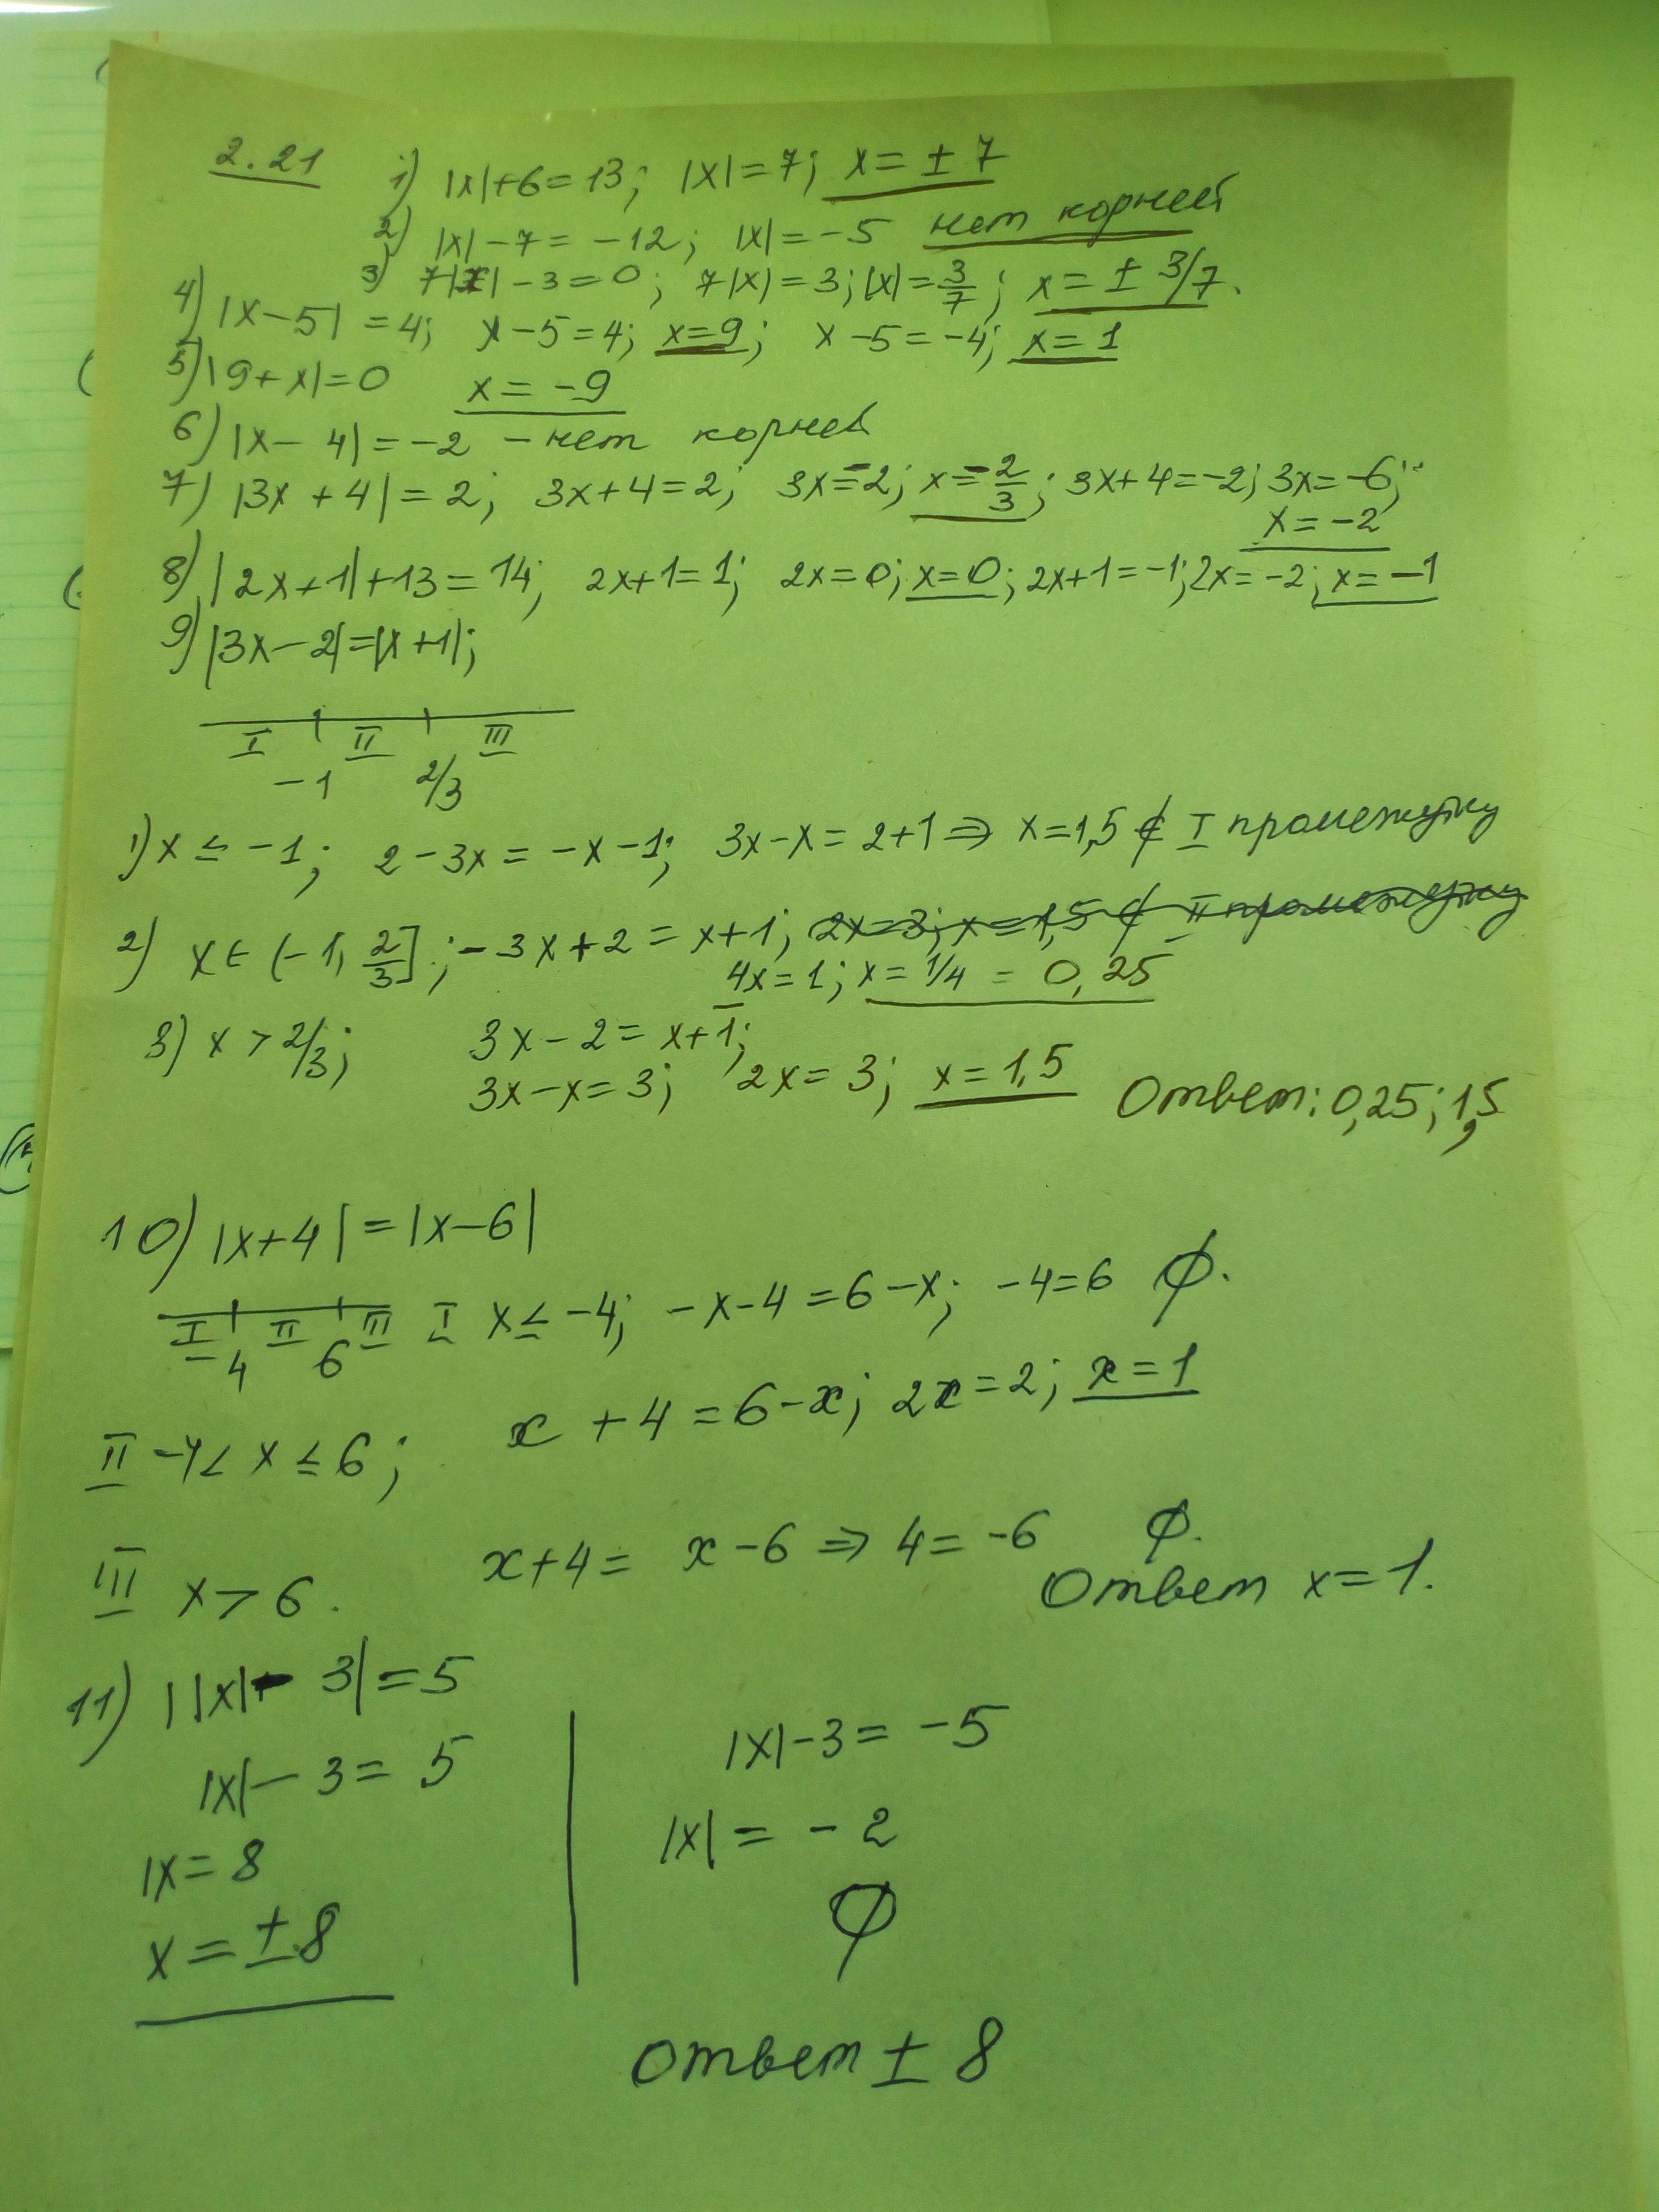 2.21 1) |x|+6=13; |x|=7; x=±7
2) |x|-7=-12; |x|=-5 нет корней
3) 7|x|-3=0; 7|x|=3; |x|=3/7; x=± 3/7.
4) |x-5|=4; x-5=4; x=9; x-5=-4; x=1
5) |9+x|=0 x=-9
6) |x-4|=-2 - нет корней
7) |3x+4|=2; 3x+4=2; 3x=-2; x=-2/3; 3x+4=-2; 3x=-6;
x=-2
8) |2x+1|+13=14; 2x+1=1; 2x=0; x=0; 2x+1=-1; 2x=-2; x=-1
9) |3x-2|=|x+1|;
I II III
-1 2/3
1) x≤-1; 2-3x=-x-1; 3x-x=2+1⇒ x=1,5 ∉ I промежутку
2) x∈(-1, 2/3]; -3x+2=x+1; 2x=3; x=1,5 ∉ II промежутку
4x=1; x=1/4=0,25
3) x>2/3; 3x-2=x+1;
3x-x=3; 2x=3; x=1,5 Ответ: 0,25; 1,5
10) |x+4|=|x-6|
I II III I x≤-4; -x-4=6-x; -4=6 ∅.
-4 6
II -4<x≤6; x+4=6-x; 2x=2; x=1
III x>6. x+4=x-6⇒4=-6 ∅.
Ответ x=1.
11) ||x|-3|=5
|x|-3=5 |x|-3=-5
|x=8 |x|=-2
x=±8 ∅
Ответ ±8